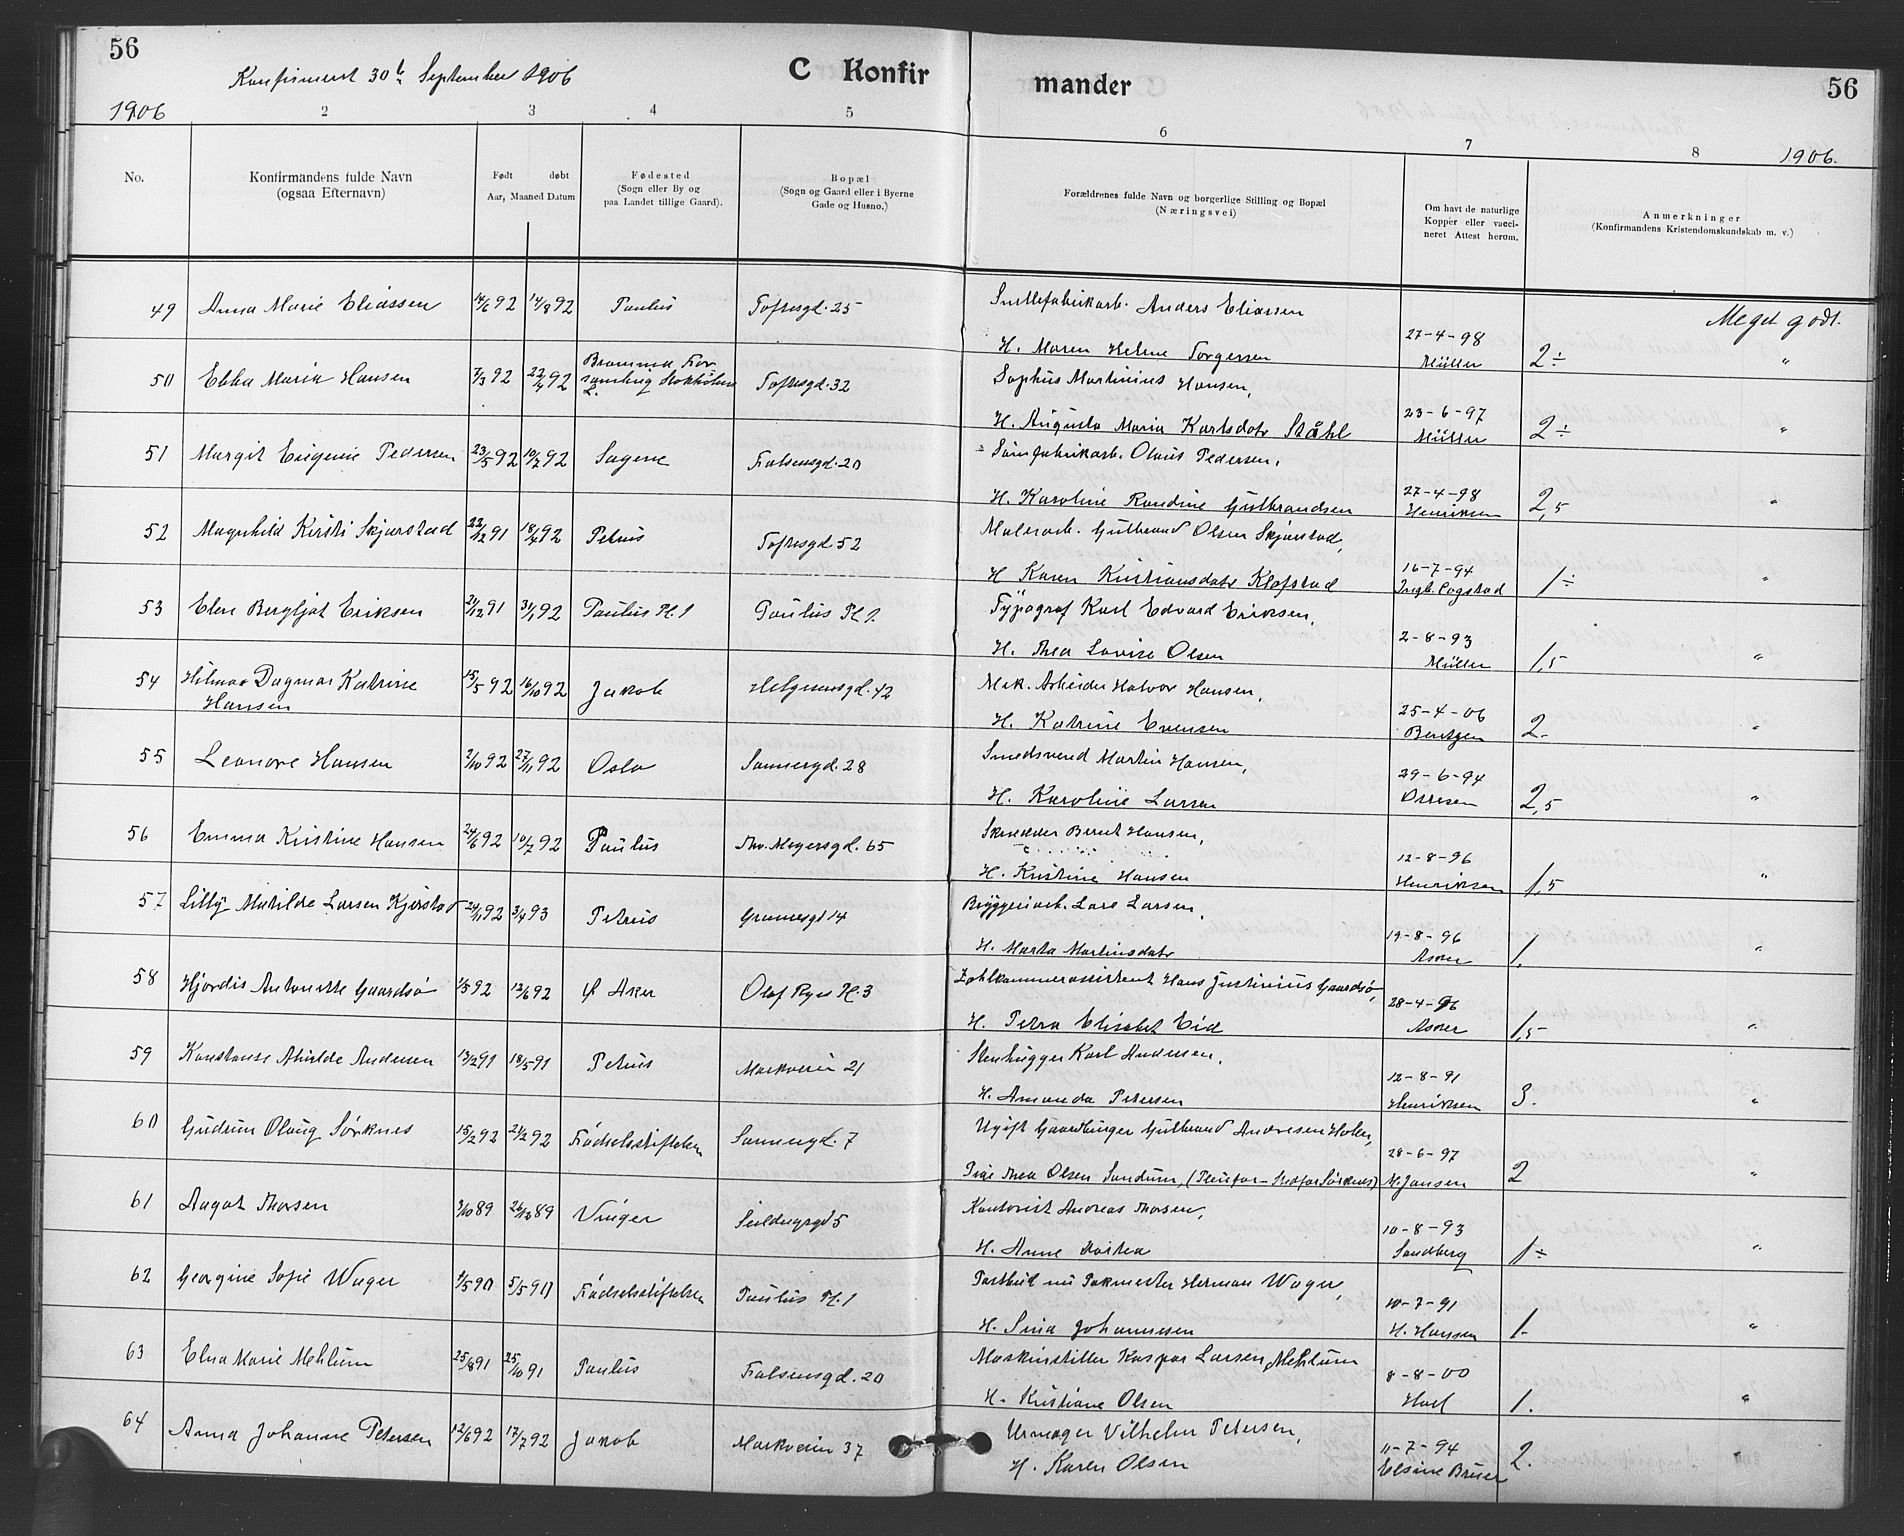 56
Konfirmert 30t. September 1906
C Konfir
mander
56
1906
2
3
4
5
6
7
8
1906.
No.
Konfirmandens fulde Navn
(ogsaa Efternavn)
Født døbt
Aar, Maaned Datum
Fødested
(Sogn eller By og
paa Landet tillige Gaard).
Bopæl
(Sogn og Gaard eller i Byerne
Gade og Husno.)
Forældrenes fulde Navn og borgerlige Stilling og Bopæl
(Næringsvei)
Om havt de naturlige
Kopper eller vacci-
neret Attest herom.
Anmerkninger
(Konfirmandens Kristendomskundskab m. v.)
49 Anna Marie Eliassen 14/6 92 14/8 92 Paulus Toftesgd. 25
Anders Eliassen
H. Maren Helene Torgersen 27-4-98 Müller 2÷ Meget godt.
50 Ebba Maria Hansen 7/3 92 22/4 92 Bromma For
samling Stokholms
L. Toftesgd. 32
Sophus Martinius Hansen,
H. Augusta Maria Karlsdatr Ståhl 23-6-97 Müller 2÷ "
51 Margit Eugenie Pedersen 23/5 92 10/7 92 Sagene Falsensgd. 20
Olaus Pedersen,
H. Karoline Randine Gulbrandsen 27-4-98 Henriksen 2,5 "
52 Magnhild Kirsti Skjørstad 22/12 91 18/4 92 Petrus Toftesgd 52
Malerarb. Gulbrand Olsen Skjørstad,
H Karen Kristiansdatr Klofstad 16-7-94 1÷ "
53 Elen Bergljot Eriksen 21/12 91 31/1 92 Paulus Pl. 1 Paulus Pl 1.
Typograf Karl Edvard Eriksen,
H. Thea Lovise Olsen 2-8-93 Müller 1,5 "
54 Hilma Dagmar Katrine
Hansen 15/5 92 16/10 92 Jakob Helgesensgd. 42
Mek. Arbeider Halvor Hansen,
H. Katrine Evensen 25-4-06 Bentzen 2. "
55 Leonore Hansen 2/10 92 27/11 92 Oslo Sannergd. 28
Smedsvend Martin Hansen,
H. Karoline Larsen 29-6-94 2,5 "
56 Emma Kristine Hansen 24/6 92 10/7 92 Paulus Thv. Meyersgd. 65
Skredder Bernt Hansen,
H. Kristine Hansen 12-8-96 Henriksen 1,5 "
57 Lilly Matilde Larsen Kjørstad 24/11 92 3/4 93 Petrus Grunersgd 14
Bryggeriarb. Lars Larsen,
H. Marta Martinsdatr 19-8-96 Asker 1, "
58 Hjørdis Antonette Gaardsø 1/5 92 12/6 92 Ø Aker Olaf Ryes Pl. 3
Zahlkammerassistent Hans Justinius Gaardsø,
H. Petra Elisabet Eid 28-4-96 Asker 1,5 "
59 Konstanse Milde Andersen 13/2 91 18/5 91 Petrus Markveien 21
Stenhugger Karl Andersen,
H. Amanda Petersen 12-8-91 Henriksen 3. "
60 Gudrun Olaug Sørknes 15/2 92 21/2 92 Fødselsstiftelsen Sannergd. 7
Ugift Gaardbruger Gulbrand Andresen Holen,
Pige Thea Olsen Sandum, (Pleiefar - Stedfar Sørknes) 28-6-97 M. Jansen 2 "
61 Aagot Thorsen 3/10 89 26/12 89 Vinger Seildugsgd 5
Kontorist Andreas Thorsen,
H. Anne Dortea 10-8-93 Sandberg 1÷ "
62 Georgine Sofie Wager 1/5 90 5/5 90 Fødselsstiftelsen Paulus Pl. 1
Postbud nu Pakmester Herman Wager,
H. Sina Johannesen 10-7-91 H. Hansen 1- "
63 Elna Marie Mehlum 25/8 91 25/10 91 Paulus Falsensgd. 20
Maskinstiller Kaspar Larsen Mehlum
H. Kristiane Olsen 8-8-00 Hoel 1. "
64 Anna Johanne Petersen 12/6 92 17/7 92 Jakob Markveien 37
Urmager Vilhelm Petersen,
H. Karen Olsen 11-7-94 Elsine 2.